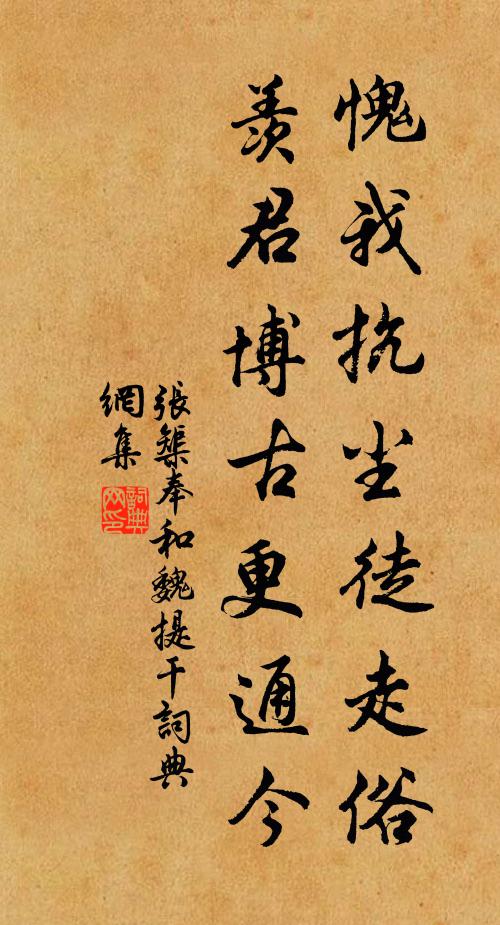 愧我抗尘徒走俗
羡君博古更通今
張榘奉和魏提干詞典
網集
詞典
网印